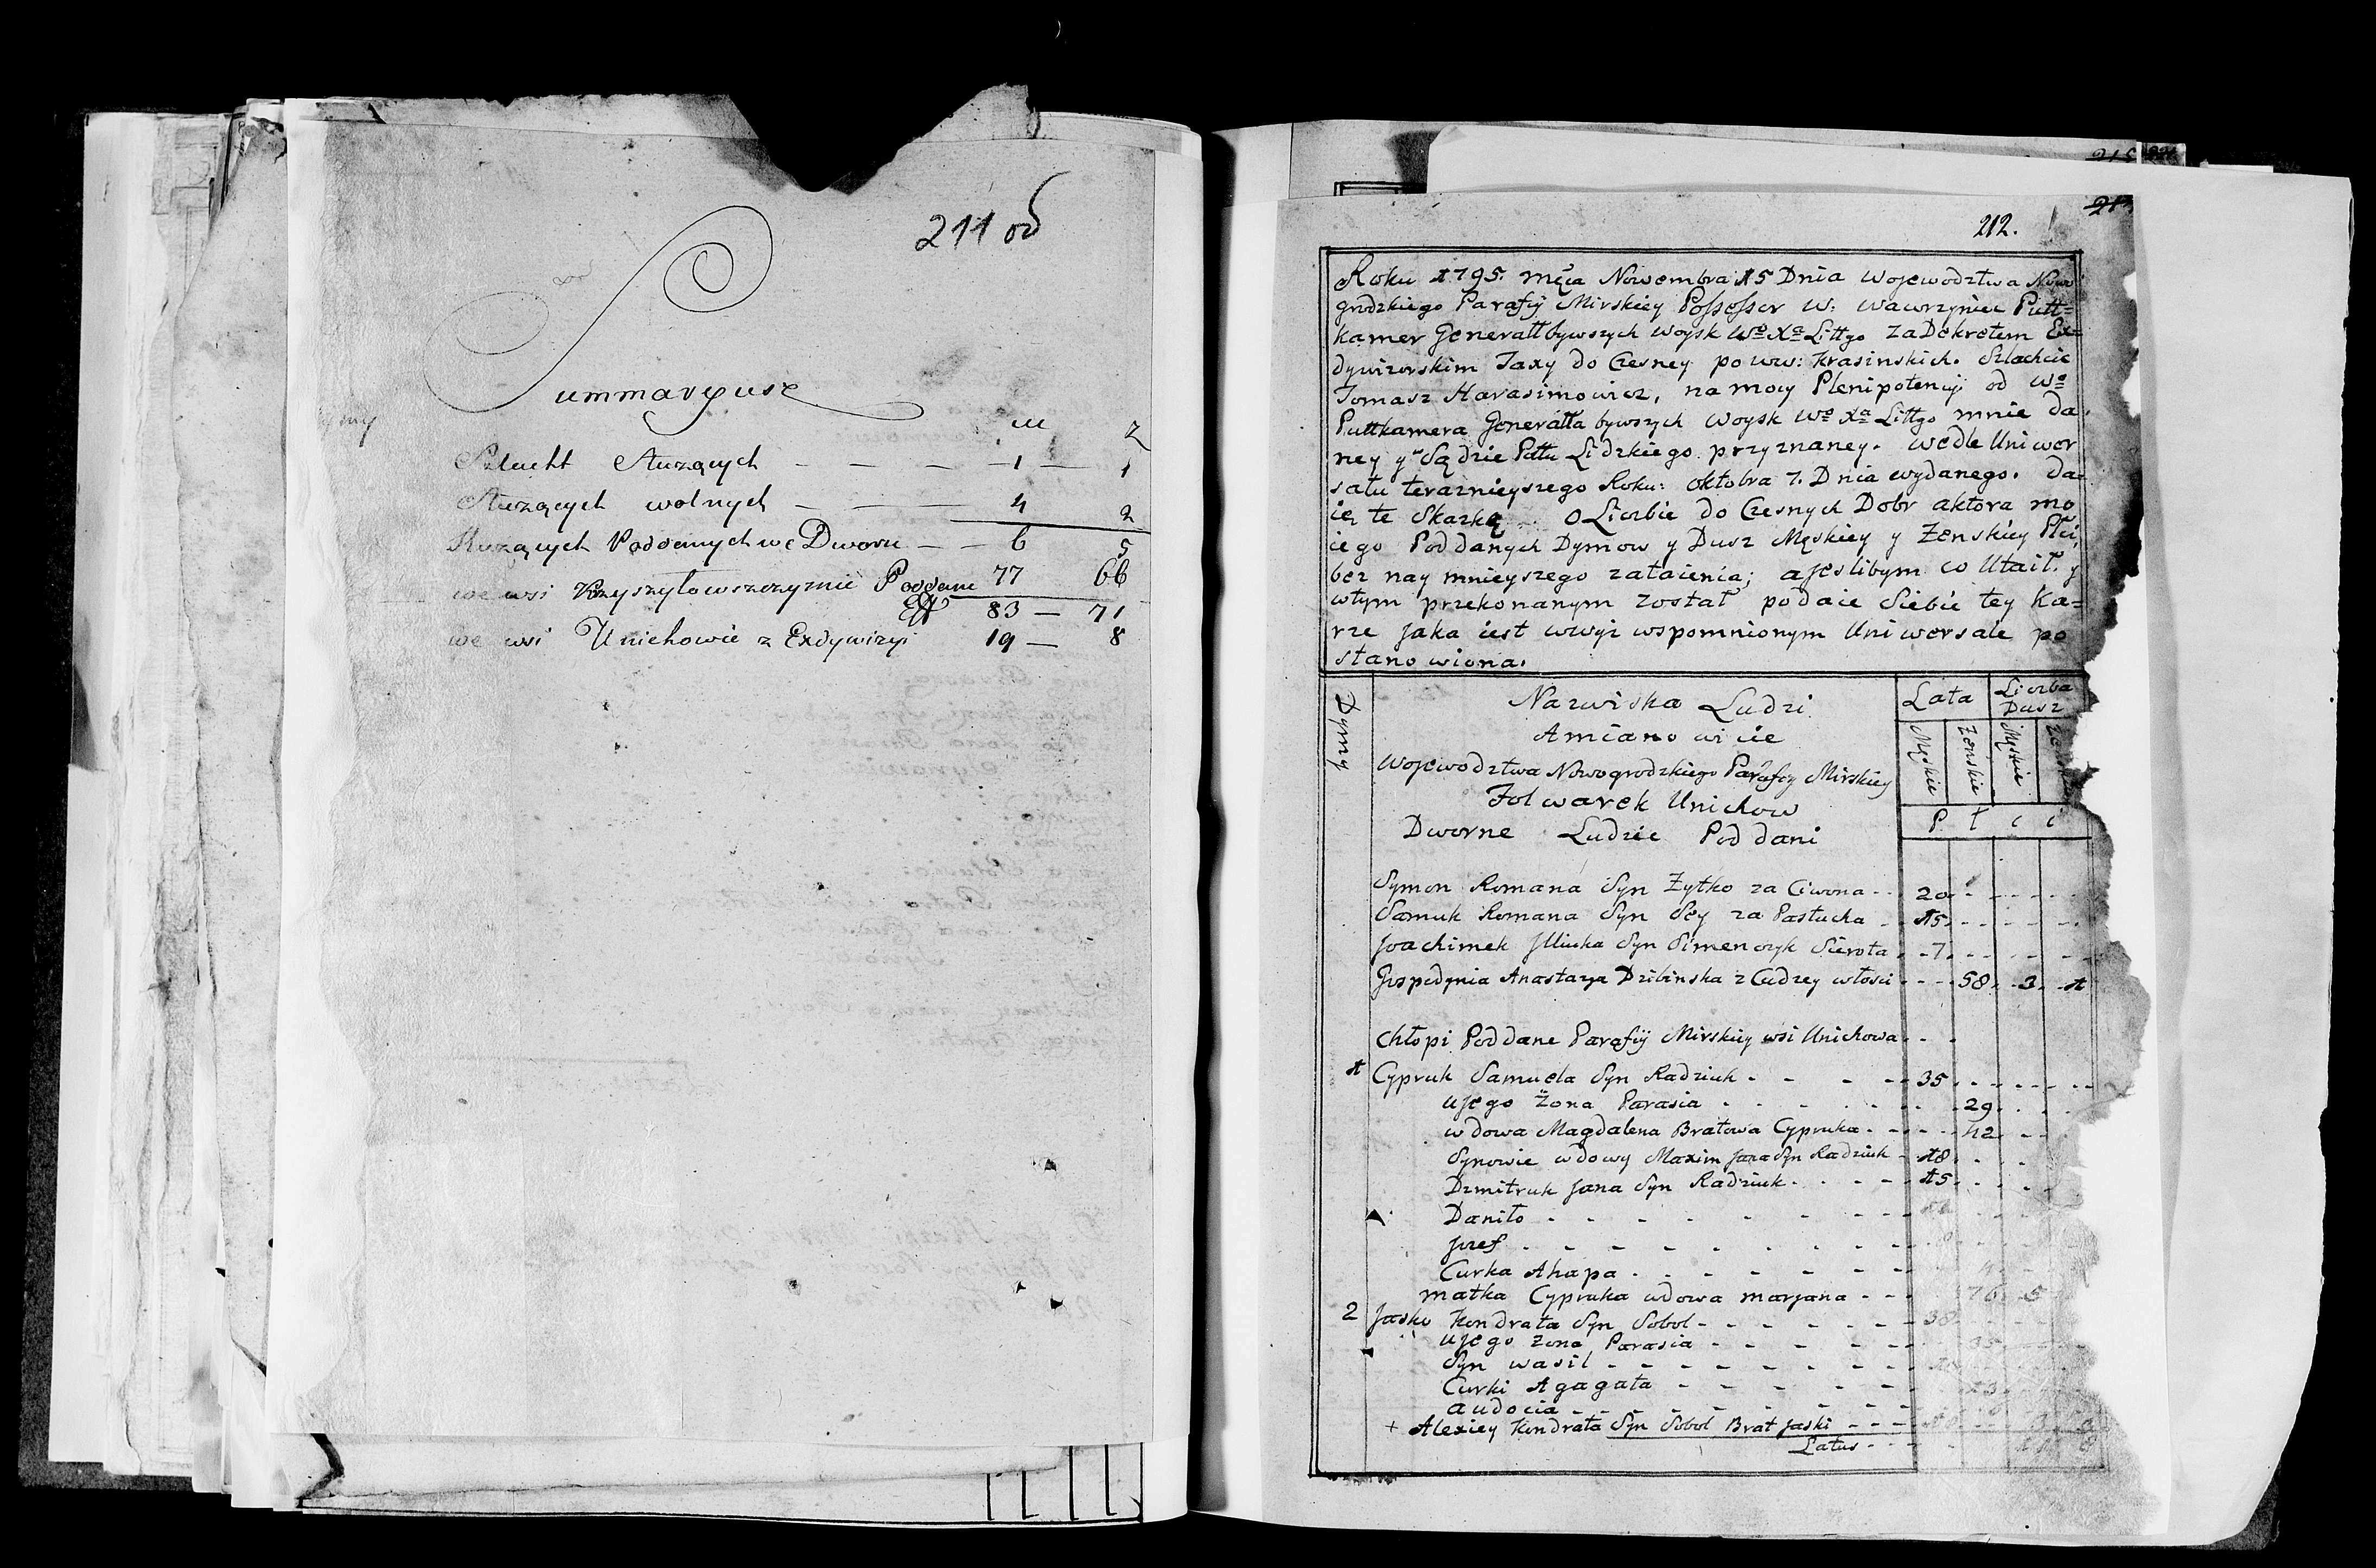 211 об
Summaryusz
M Z
Szlacht Służących — — — 1 — 1
Służących wolnych — — 4 2
Służących Poddanych we Dworu — — 6 5
we wsi Krzyszyłowszczyznie Poddane 77 66
Eff 83 — 71
we wsi Unichowie z Exdywizyi 19 — 8
212.
Roku 1795. męca Nowembra 15 Dnia Wojewodztwa Nowo
grodzkiego Parafij Mirskiey Possessor W: Wawrzyniec Putt=
kamer Generałł bywszych Woysk Wo Xa Littgo za Dekretem Ex=
dywizorskim Taxy do Czesney po ww: Krasinskich. Szlachcic
Tomasz Harasimowicz, na mocy Plenipotencyi od Wo
Puttkamera Generałła bywszych Woysk Wo Xa Littgo mnie da
ney y w Sądzie Pttu Lidzkiego przyznaney. wedle Uniwer
sału teraznieyszego Roku: Oktobra 7. Dnia wydanego. da
ię te Skazkę O Liczbie do Czesnych Dobr aktora mo
iego Poddanych Dymow y Dusz Męskiey y Zenskiey Płci,
bez nay mnieyszego zataienia; a jeslibym co Utaił. y
wtym przekonanym został podaie Siebie tey Ka=
rze jaka iest wwyż wspomnionym Uniwersale po
stanowiona.
Dymy
Nazwiska Ludzi
Amianowicie
Wojewodztwa Nowogrodzkiego Parafij Mirskiey
Folwarek Unichow
Dworne Ludzie Poddani
Lata Liczba Dusz
Męskie Zenskie Męskie
P ł c i
Symon Romana Syn Zytko za Ciwona - - 20
Samuk Romana Syn Sey za Pastucha - 15
Joachimek Jlliuka Syn Simenczyk Sierota - 7
Gospodynia Anastazya Dzibinska z Cudzey włosci - - - 58 - 3 - 1
Chłopi Poddane Parafij Mirskiey wsi Unichowa - - -
1 Cypruk Samuela Syn Radziuk - - - - 35
ujego Żona Parasia - - - - 29
wdowa Magdalena Bratowa Cypruka - - - 42
Synowie wdowy Maxim Jana Syn Radziuk - 18
Dzmitruk Jana Syn Radziuk - - - - 15
Daniło - - - - - -
Jozef - - - - - -
Curka Ahapa - - - - - -
matka Cypruka wdowa maryana - - - 76 - 5
2 Jasko Kondrata Syn Sobol - - - - - 38
ujego zona Parasia - - - - 35
Syn wasil - - - - - -
Curki Agagata - - - - - 13
audocia - - - - - -
+ Alexiey Kondrata Syn Sobol Brat Jaski - - -
Latus - - -